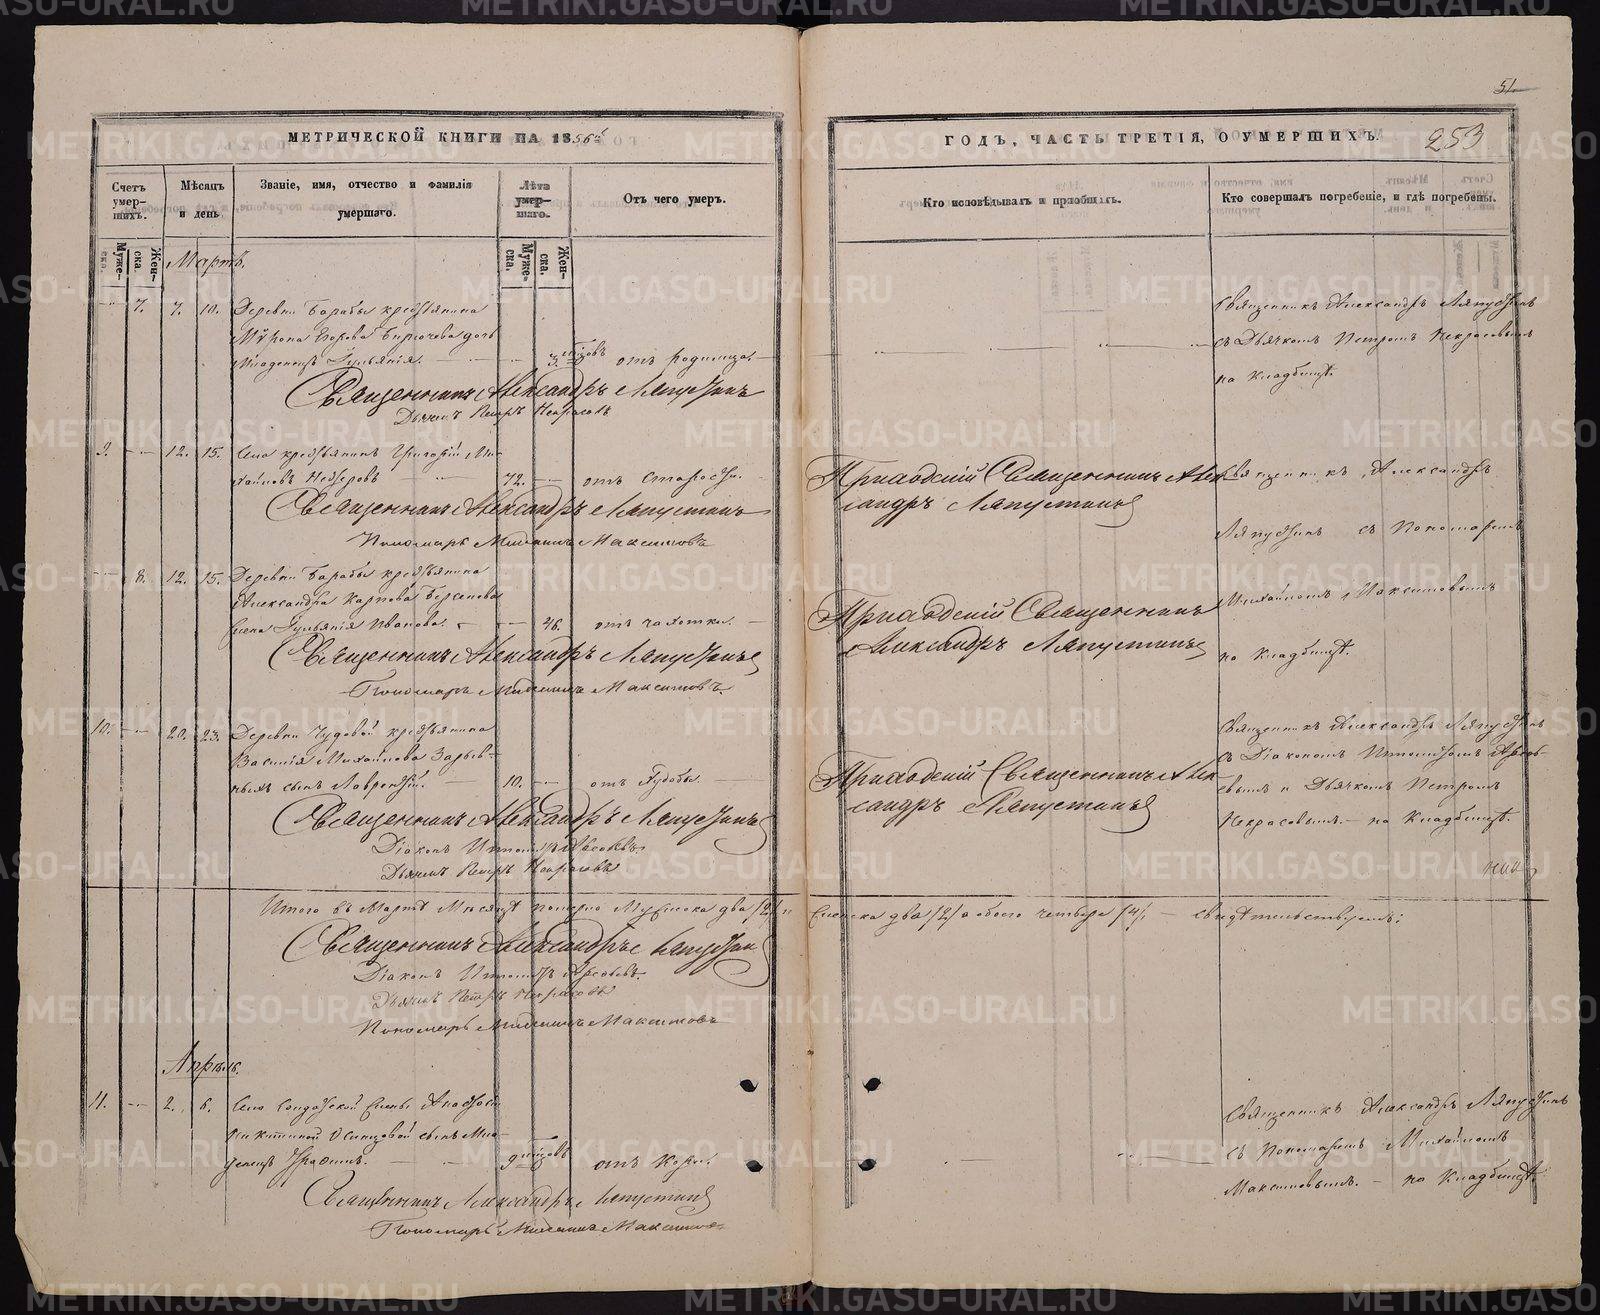 51
МЕТРИЧЕСКОЙ КНИГИ НА 1856й
Счетъ умер-шихъ.
Мѣсяцъ и день
Званіе, имя, отчество и фамилія умершаго.
Лѣта умер-шаго.
Отъ чего умеръ.
Муже-ска.
Жен-ска.
Муже-ска.
Жен-ска.
Мартъ.
7. 7. 10. Деревни Барабы крестьянина
Мѵрона Егорова дочь
Младенецъ Іуліанія. 3. отъ родимца.
Священникъ Александръ Ляпустинъ
Дьячекъ Петръ Некрасовъ
9. 12. 15. Села крестьянинъ Григорій Ми-
хайловъ 72. отъ старости.
Священникъ Александръ Ляпустинъ
Пономарь Михаилъ Максимовъ
8. 12. 15. Деревни Барабы крестьянина
Александра Карпова Берсенева
жена Іуліанія Иванова. 46. отъ чахотки.
Священникъ Александръ Ляпустинъ
Пономарь Михаилъ Максимовъ.
10. 20. 23. Деревни Чудовой крестьянина
Василія Михайлова Зарыв-
ныхъ сынъ Лаврентій. 10. отъ худобы.
Священникъ Александръ Ляпустинъ
Діаконъ
Дьячекъ Петръ Некрасовъ
Итого въ Мартѣ Мѣсяцѣ померло Мужеска два /2/ и
Священникъ Александръ Ляпустинъ
Діаконъ
Дьячекъ Петръ Некрасовъ
Пономарь Михаилъ Максимовъ
Апрѣль.
11. 2. 6. Села солдатской жены
Никитиной Осинцовой сынъ Мла-
денецъ 9 отъ кори.
Священникъ Александръ Ляпустинъ
Пономарь Михаилъ Максимовъ
ГОДЪ, ЧАСТЬ ТРЕТІЯ, О УМЕРШИХЪ.
253
Кто исповѣдывалъ и пріобщалъ.
Кто совершалъ погребеніе, и гдѣ погребены.
Священникъ Александръ Ляпустинъ
съ Дьячкомъ Петромъ Некрасовымъ
на кладбищѣ.
Приходскій Священникъ Алек-
сандръ Ляпустинъ
Священникъ Александръ
Ляпустинъ съ Пономаремъ
Приходскій Священникъ
Александръ Ляпустинъ
Михайломъ Максимовымъ
на кладбищѣ.
Приходскій Священникъ Алек-
сандръ Ляпустинъ
Священникъ Александръ Ляпустинъ
съ Діакономъ
и Дьячкомъ Петромъ
Некрасовымъ. - на кладбищѣ.
Женска два /2/ а обоего четверо /4/; - свидѣтельствуемъ:
Священникъ Александръ Ляпустинъ
съ Пономаремъ Михайломъ
Максимовымъ. - на кладбищѣ.
METRIKI.GASO-URAL.RU